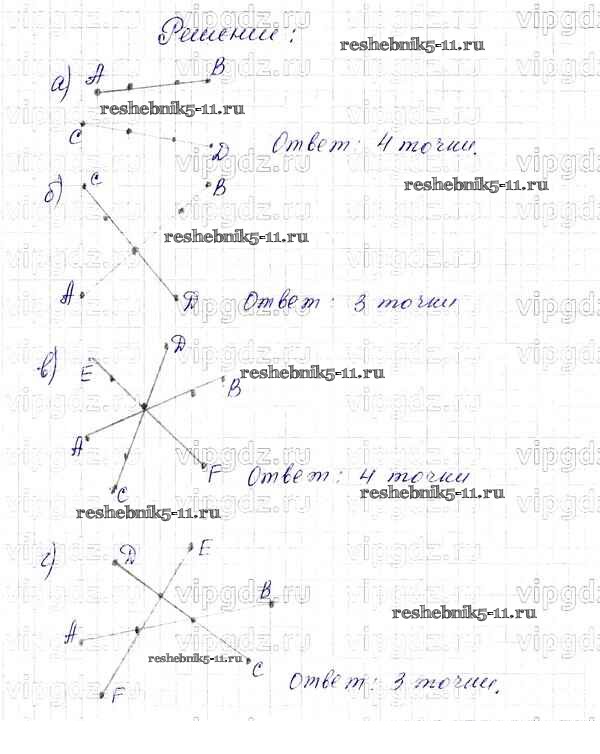 Решение:
reshebnik5-11.ru
а) A B
reshebnik5-11.ru
C D Ответ: 4 точки.
б) C B
reshebnik5-11.ru
reshebnik5-11.ru
A D Ответ: 3 точки
в) E D B
reshebnik5-11.ru
A C F Ответ: 4 точки
reshebnik5-11.ru
reshebnik5-11.ru
г) D E
A B
reshebnik5-11.ru
reshebnik5-11.ru
F C Ответ: 3 точки.
vipgdz.ru